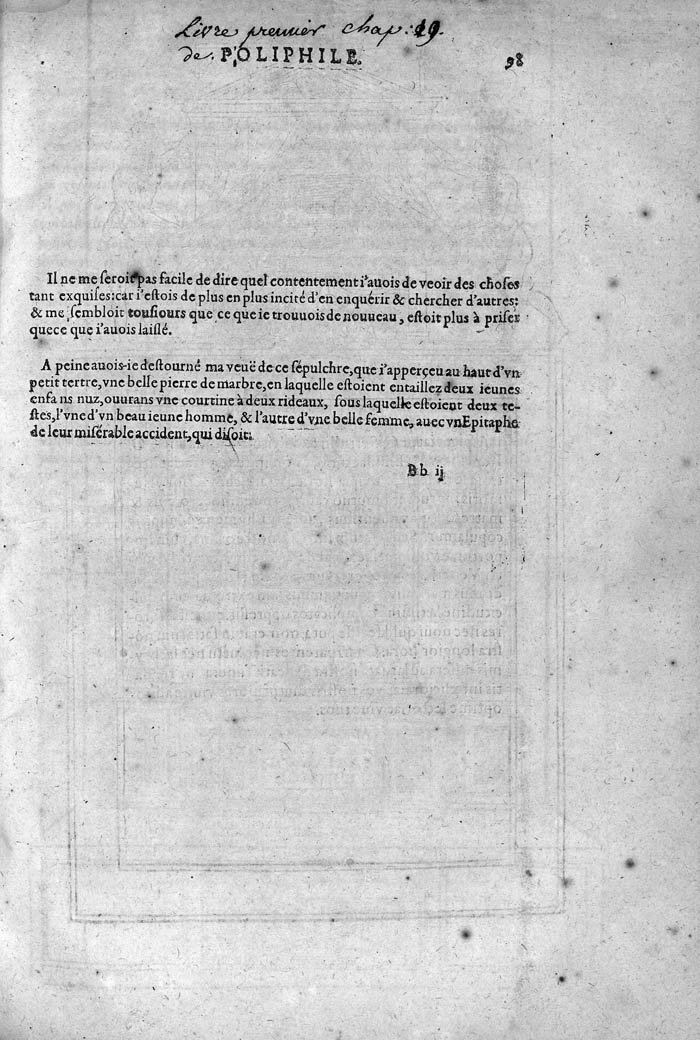 Livre premier chap: 19.
de. POLIPHILE. 98
Il ne me seroit pas facile de dire quel contentement i'auois de veoir des choses
tant exquises: car i'estois de plus en plus incité d'en enquérir & chercher d'autres:
& me sembloit tousiours que ce que ie trouuois de nouueau, estoit plus à priser
quece que i'auois laissé.
A peine auois-ie destourné ma veuë de ce sépulchre, que i'apperçeu au haut d'vn
petit tertre, vne belle pierre de marbre, en laquelle estoient entaillez deux ieunes
enfans nuz, ouurans vne courtine à deux rideaux, sous laquelle estoient deux te-
stes, l'vne d'vn beau ieune homme, & l'autre d'vne belle femme, auec vn Epitaphe
de leur misérable accident, qui disoit.
Bb ij